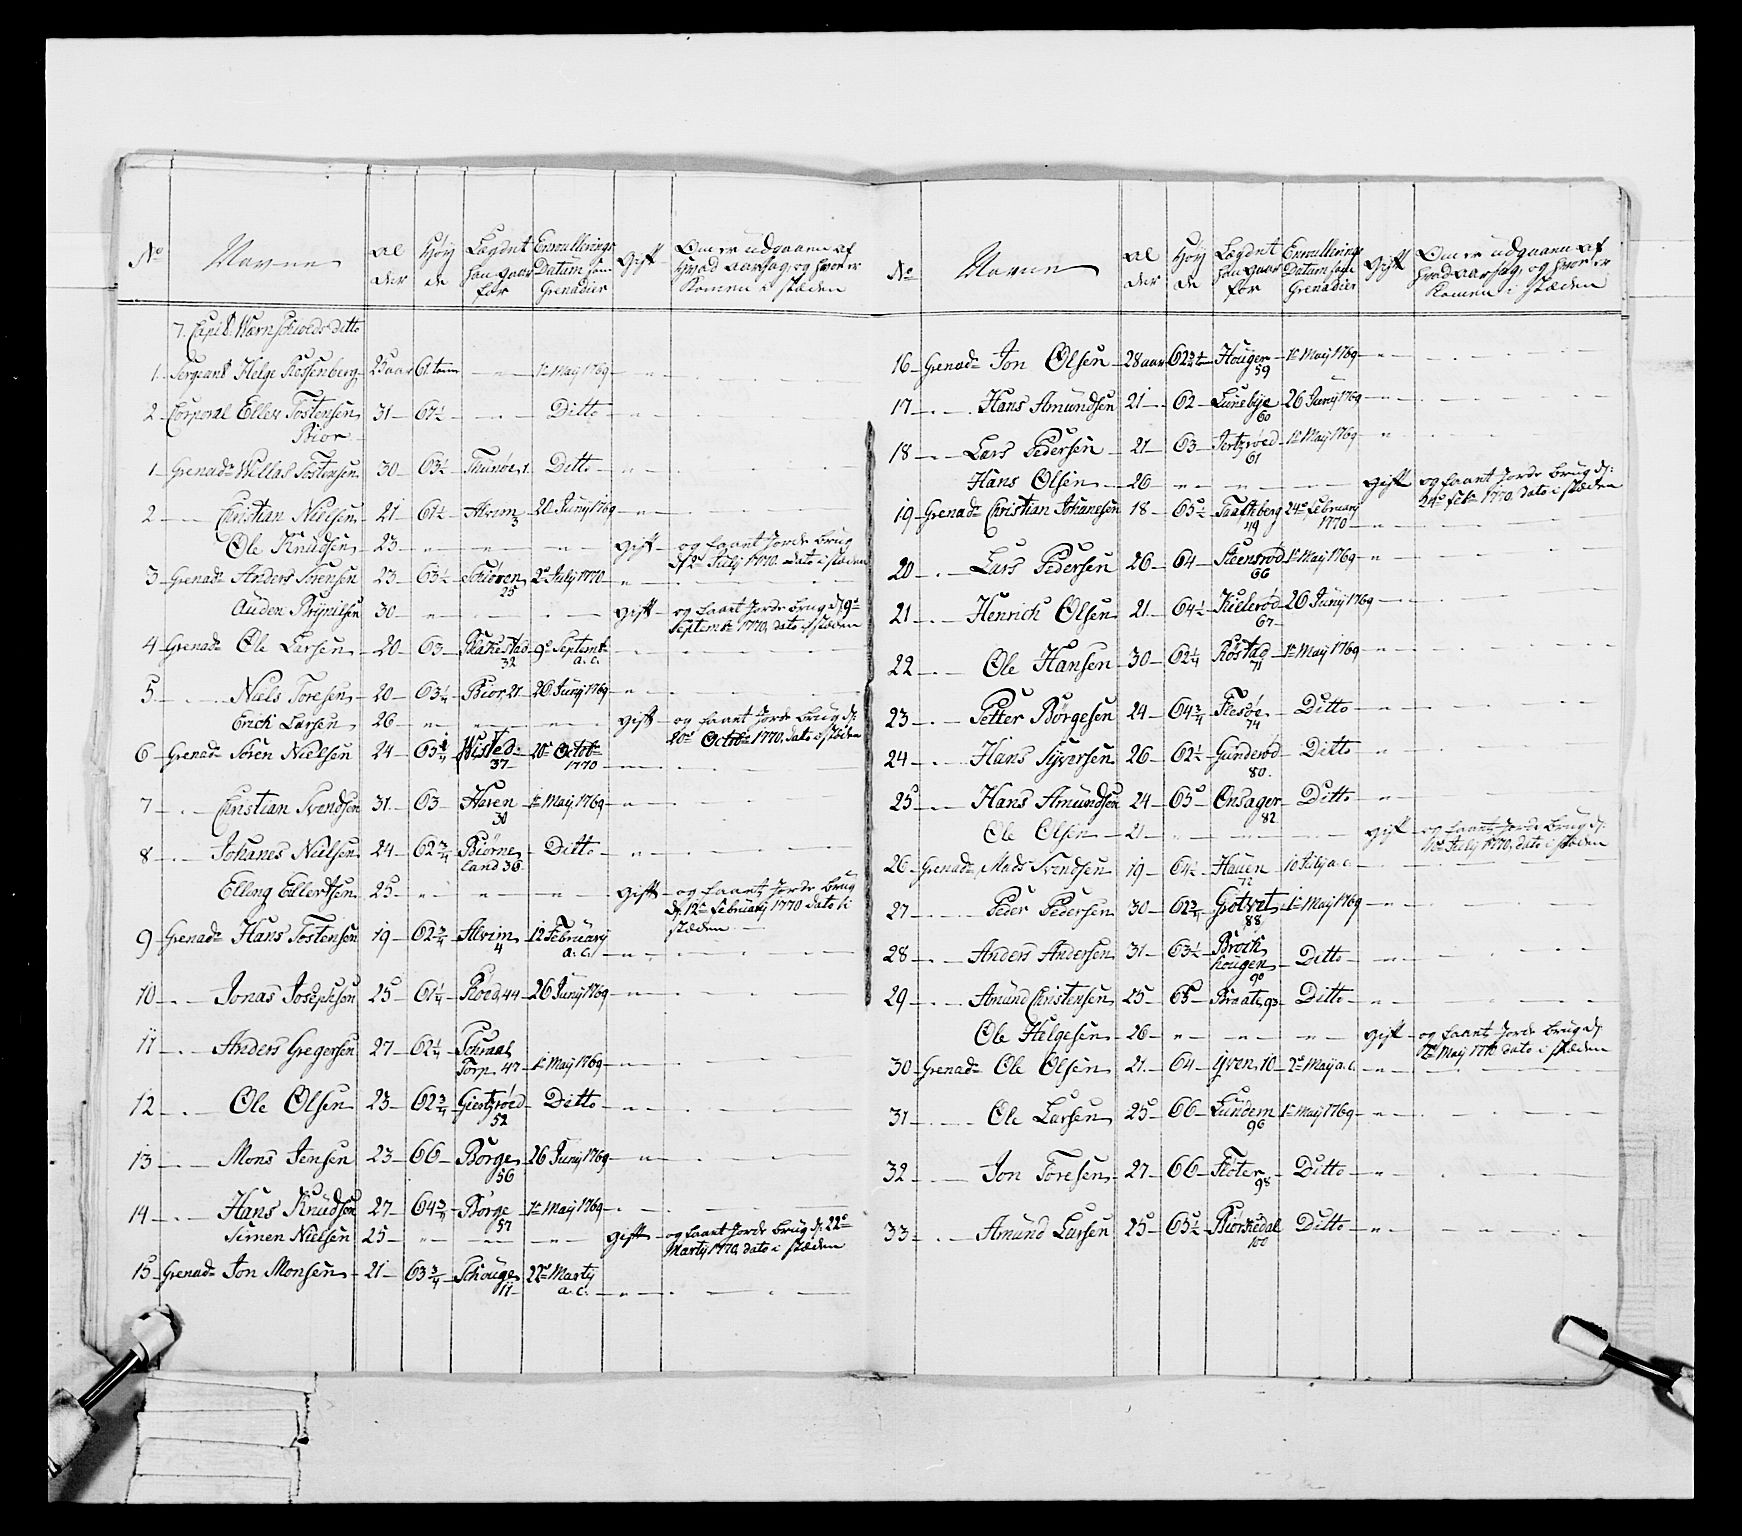 No Navne Alder Høyde Lægdet han gaar for Enroullerings Datum som Grenadier Gift Om er udgaaen af hvad aarsag, og hvor er kommen i stæden
7. Capit. Warnschiolds ditto
1 Sergeant Helge Rossenberg 23 aar 61 tom 1te Maij 1769
2 Corporal Eller Tostensen Bior 31 67½ Ditto
1 Grenadr Willas Tostensen 30 63½ Thunøe 1. Ditto
2 Christian Nielsen 21 61½ Alvim 3 20 Junij 1769
Ole Knudsen 23 Gift og faaet Jorde brug d: 2de Julij 1770. dato i stæden
3 Grenadr Anders Sørensen 23 63½ Schioren 25 2de Julij 1770
Auden Brynilsen 30 Gift og faaet Jorde brug d: 9de Septembr 1770, dato i stæden
4 Grenadr Ole Larsen 20 63 Blakestad 32 9de Septembr a.c.
5 Niels Toresen 20 63¼ Bior 21. 26 Junij 1769
Erich Larsen 26 Gift og faaet Jorde brug d: 20de Octobr 1770. dato i stæden
6 Grenadr Søren Nielsen 24 65¾ Wisted 37 20de Octobr 1770
7 Christian Svendsen 31 63 Haven 30 1te Maij 1769
8 Johanes Nielsen 24 62¾ Biørneland 36 Ditto
Elling Ellertsen 25 Gift og faaet Jorde brug d: 12te Februarij 1770 dato i stæden
9 Grenadr Hans Tostensen 19 62¾ Alvim 4 12 Februarij a.c.
10 Jonas Josephsen 25 61¼ Roed, 44 26 Junij 1769
11 Anders Gregersen 27 62¼ Schraatorp, 47 1te Maij 1769
12 Ole Olsen 23 62¾ Giertzrøed 52 Ditto
13 Mons Jensen 23 66 Borge 56 26 Junij 1769
14 Hans Knudsen 27 64¾ Børge 57 1te Maij 1769
Simen Nielsen 25 Gift og faaet Jorde brug d: 22de Martij 1770, dato i stæden
15 Grenadr Jon Monsen 21 63¾ Schouge 11 22de Martij a.c.
No Navne Alder Høyde Lægdet han gaar for Enroullerings Datum som Grenadier Gift Om er udgaaen af hvad aarsag, og hvor er kommen i stæden
16 Grenadr Jon Olsen 28 aar 62¾ t Houger 59 1te Maij 1769
17 Hans Amundsen 21 62 Lunebye 60 26 Junij 1769
18 Lars Pedersen 21 63 Tertzrøed 61 1te Maij 1769
Hans Olsen 26 Gift og faaet Jorde brug d: 24de Febr 1770. dato i stæden
19 Grenadr Christian Johanesen 18 65½ Taaftberg 49 24de Februarij 1770
20 Lars Pedersen 26 64 Steensrød 66 1te Maij 1769
21 Henrich Olsen 21 64½ Kielerød 67 26 Junij 1769
22 Ole Hansen 30 62¼ Røstad 71 1te Maij 1769
23 Petter Børgesen 24 64¾ Flesøe 74 Ditto
24 Hans Syversen 26 62½ Gunderød 80 Ditto
25 Hans Amundsen 24 65 Onsager 82 Ditto
Ole Olsen 21 Gift og faaet Jorde brug d: 10de Julij 1770, dato i stæden
26 Grenadr Mads Svendsen 19 64½ Hauen 72 10 Julij a.c.
27 Peder Pedersen 30 62¾ Grotvet 88 1te Maij 1769
28 Anders Andersen 31 63½ Brækhougen 90 Ditto
29 Amund Christensen 25 65 Braate, 93 Ditto
Ole Helgesen 26 Gift og faaet Jorde brug d: 2de Maij 1770 dato i stæden
30 Grenadr Ole Olsen 21 64 Qven 10 2de Maij a.c.
31 Ole Larsen 25 66 Lundem 96 1te Maij 1769
32 Jon Toresen 27 66 Fløter 98 Ditto
33 Amund Larsen 25 65½ Biørkedal 100 Ditto